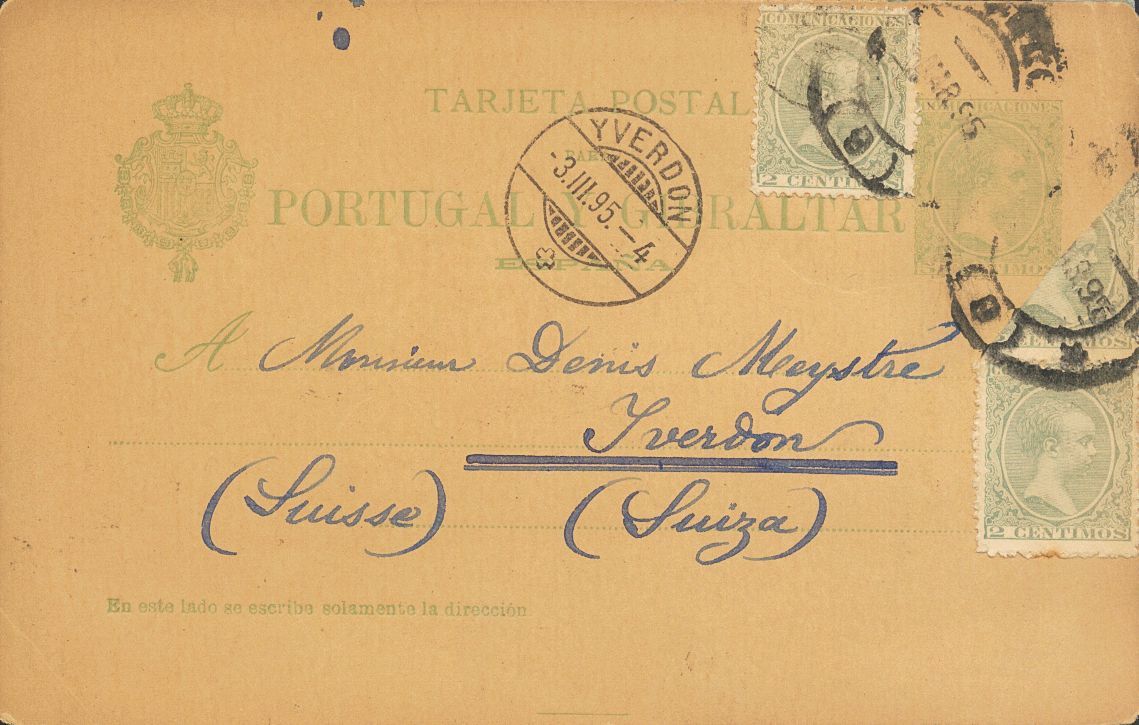 COMUNICACIONES
2 CENTIMOS
COMUNICACIONES
5 CENTIMOS
TARJETA POSTAL
PARA
PORTUGAL Y GIBRALTAR
ESPAÑA
YVERDON
-3.III.95.-4
MAR.95
95
A Monsieur Denis Meystre
Yverdon
(Suisse) (Suiza)
2 CENTIMOS
En este lado se escribe solamente la dirección